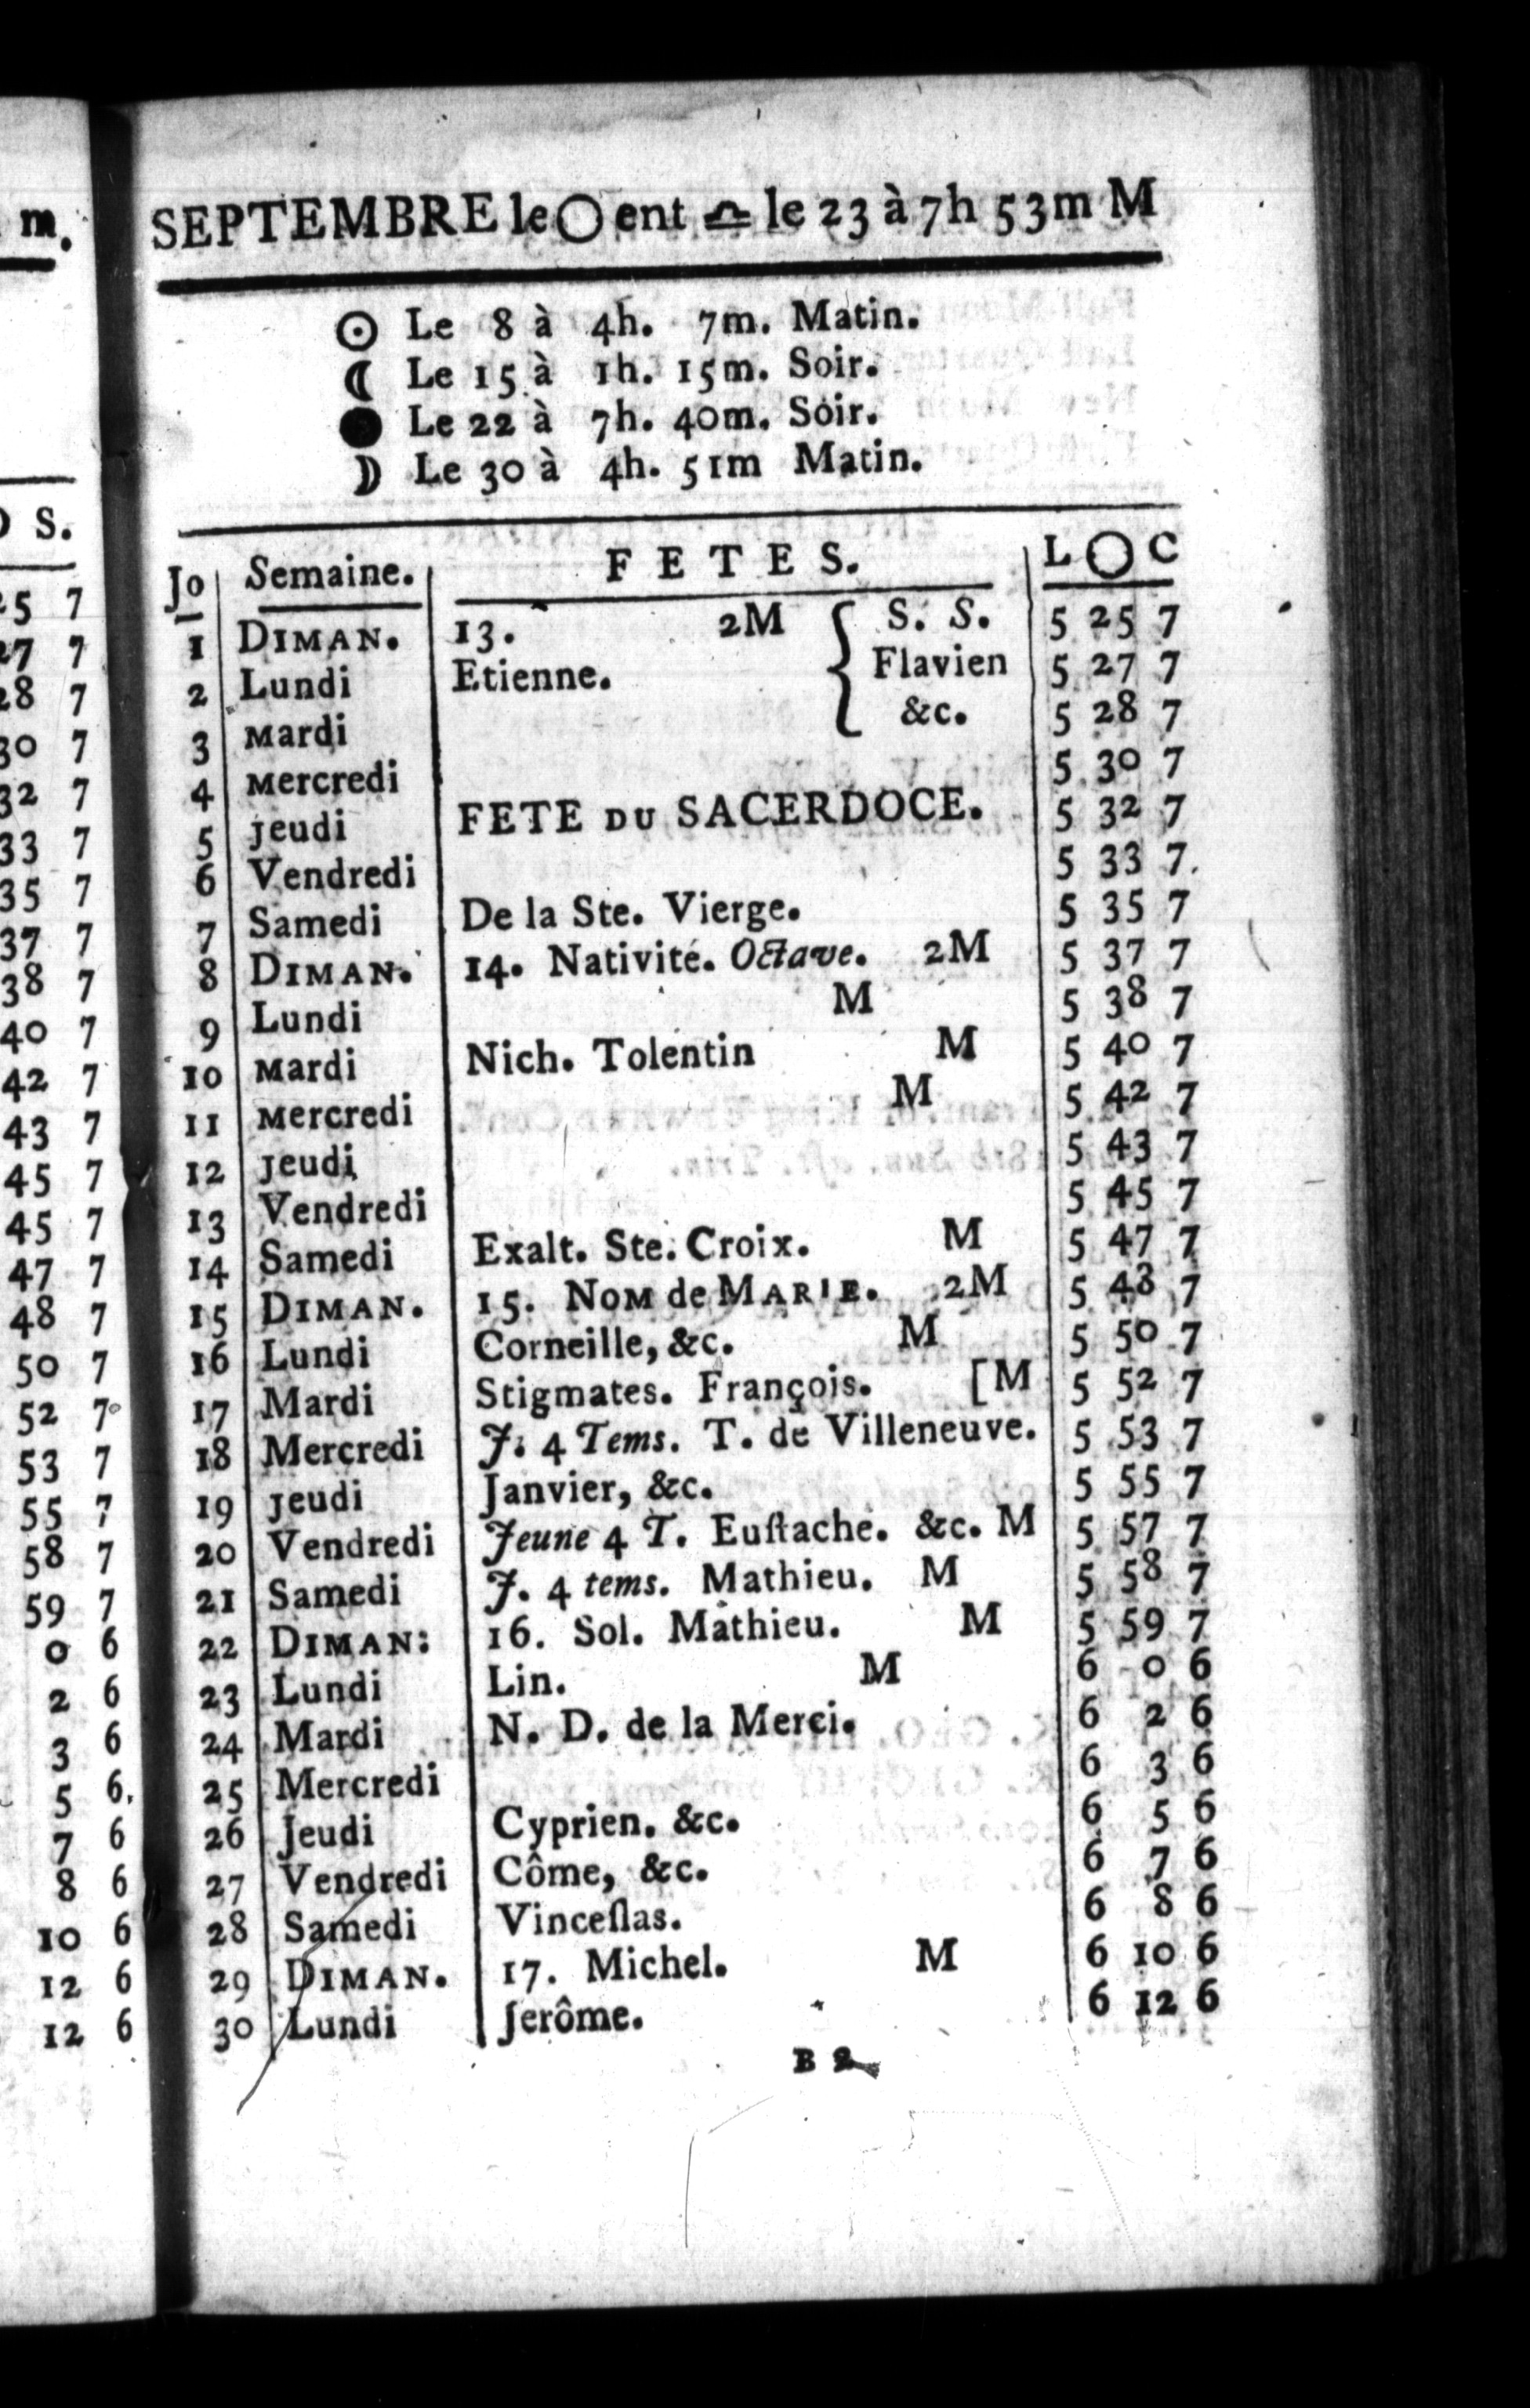 m.
S.
25 7
27 7
28 7
30 7
32 7
33 7
35 7
37 7
38 7
40 7
42 7
43 7
45 7
45 7
47 7
48 7
50 7
52 7
53 7
55 7
58 7
59 7
0 6
2 6
3 6
5 6.
7 6
8 6
10 6
12 6
12 6
SEPTEMBRE le ◯ ent ♎ le 23 à 7h 53m M
☉ Le 8 à 4h. 7m. Matin.
☾ Le 15 à 1h. 15m. Soir.
● Le 22 à 7h. 40m. Soir.
☽ Le 30 à 4h. 51m Matin.
Jo Semaine. FETES. L ◯ C
1 DIMAN. 13. 2M { S. S. 5 25 7
2 Lundi Etienne. Flavien 5 27 7
3 Mardi &c. 5 28 7
4 Mercredi 5 30 7
5 Jeudi FETE DU SACERDOCE. 5 32 7
6 Vendredi 5 33 7.
7 Samedi De la Ste. Vierge. 5 35 7
8 DIMAN. 14. Nativité. Octave. 2M 5 37 7
9 Lundi M 5 38 7
10 Mardi Nich. Tolentin M 5 40 7
11 Mercredi M 5 42 7
12 Jeudi 5 43 7
13 Vendredi 5 45 7
14 Samedi Exalt. Ste. Croix. M 5 47 7
15 DIMAN. 15. NOM de MARIE. 2M 5 48 7
16 Lundi Corneille, &c. M 5 50 7
17 Mardi Stigmates. François. [M 5 52 7
18 Mercredi J. 4 Tems. T. de Villeneuve. 5 53 7
19 Jeudi Janvier, &c. 5 55 7
20 Vendredi Jeune 4 T. Euſtache. &c. M 5 57 7
21 Samedi J. 4 tems. Mathieu. M 5 58 7
22 DIMAN: 16. Sol. Mathieu. M 5 59 7
23 Lundi Lin. M 6 0 6
24 Mardi N. D. de la Merci. 6 2 6
25 Mercredi 6 3 6
26 Jeudi Cyprien. &c. 6 5 6
27 Vendredi Côme, &c. 6 7 6
28 Samedi Vinceſlas. 6 8 6
29 DIMAN. 17. Michel. M 6 10 6
30 Lundi Jerôme. 6 12 6
B 2